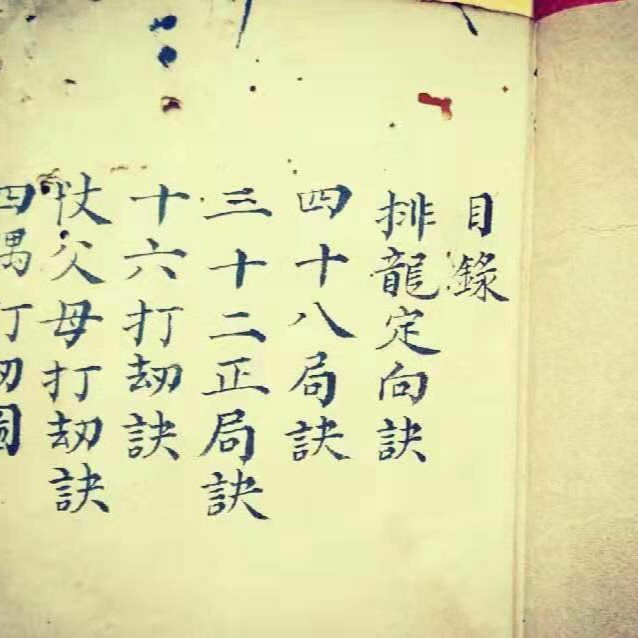 目錄
排龍定向訣
四十八局訣
三十二正局訣
十六打刼訣
仗父母打刼訣
四隅打刼圖